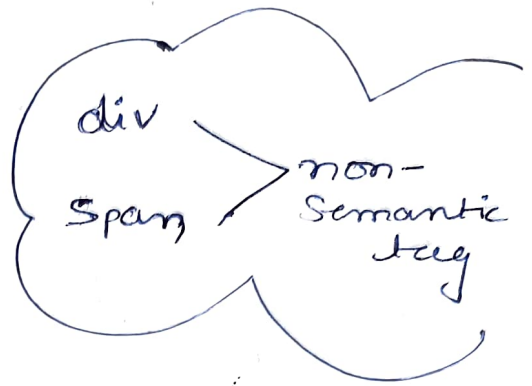 div
Span
non-
Semantic
tag